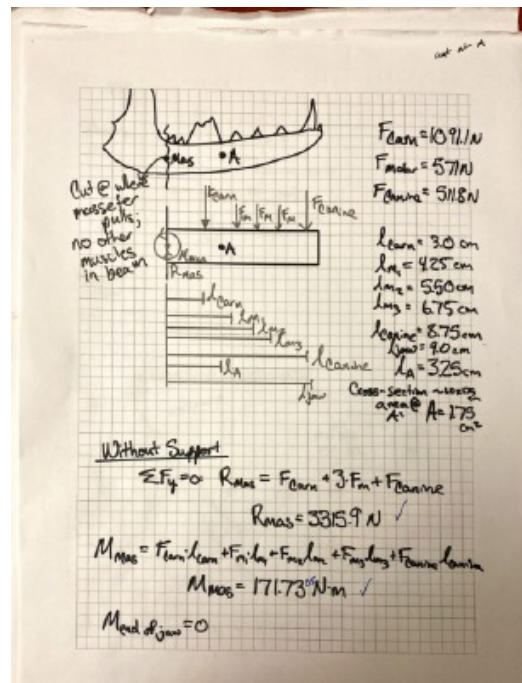 cut at A
Mas
A
Cut @ where
masseter
pulls,
no other
muscles
in beam
Fcarn
Fm Fm Fm
Fcanine
Mmas
A
Rmas
lcarn
lm1
lm2
lm3
lcanine
lA
ljaw
Fcarn = 1091.1N
Fmolar = 571N
Fcanine = 511.8N
lcarn = 3.0 cm
lm1 = 4.25 cm
lm2 = 5.50 cm
lm3 = 6.75 cm
lcanine = 8.75 cm
ljaw = 9.0 cm
lA = 3.25 cm
Cross-section
area @ A = 1.75
A: cm²
Without Support
ΣFy=0: Rmas = Fcarn + 3·Fm + Fcanine
Rmas = 3315.9 N ✓
Mmas = Fcarn·lcarn + Fm·lm + Fm2·lm2 + Fm3·lm3 + Fcanine·lcanine
Mmas = 171.73 N·m ✓
Mend of jaw = 0